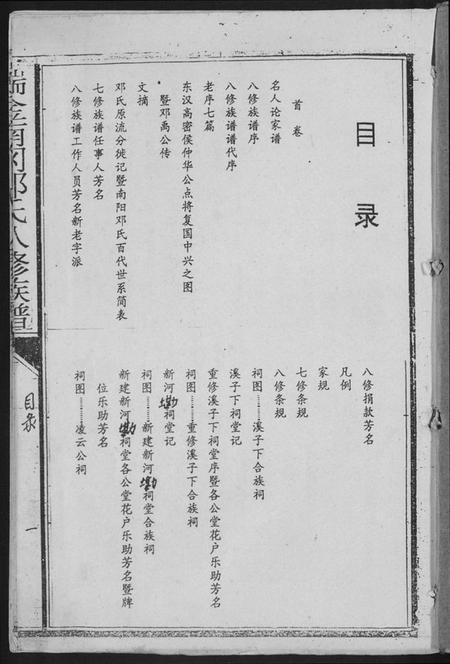 目录
首卷
名人论家谱
八修族谱序
八修族谱谱代序
老序七篇
东汉高密侯仲华公点将复国中兴之图
暨邓禹公传
文摘
邓氏原流分徙记暨南阳邓氏百代世系简表
七修族谱任事人芳名
八修族谱工作人员芳名新老字派
八修捐款芳名
凡例
家规
七修条规
八修条规
祠图………溪子下合族祠
溪子下祠堂记
重修溪子下祠堂序暨各公堂花户乐助芳名
祠图………重修溪子下合族祠
新河塅祠堂记
祠图………新建新河塅祠堂合族祠
新建新河塅祠堂各公堂花户乐助芳名暨牌
位乐助芳名
祠图………凌云公祠
邓氏八修族谱
目录
一